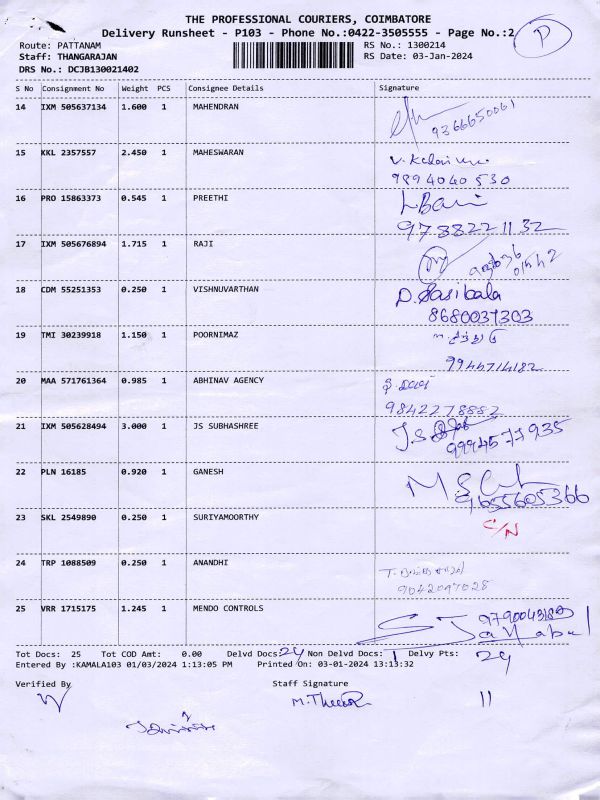 THE PROFESSIONAL COURIERS, COIMBATORE
Delivery Runsheet - P103 - Phone No.:0422-3505555 - Page No.:2
P
Route: PATTANAM
RS No.: 1300214
Staff: THANGARAJAN
RS Date: 03-Jan-2024
DRS No.: DCJB130021402
S No Consignment No Weight PCS Consignee Details Signature
14 IXM 505637134 1.600 1 MAHENDRAN
9366650061
15 KKL 2357557 2.450 1 MAHESWARAN
9894040530
16 PRO 15863373 0.545 1 PREETHI
9788221132
17 IXM 505676894 1.715 1 RAJI
18 CDM 55251353 0.250 1 VISHNUVARTHAN D. Sasibala
8680037303
19 TMI 30239918 1.150 1 POORNIMAZ
9944714182
20 MAA 571761364 0.985 1 ABHINAV AGENCY
9842278882
21 IXM 505628494 3.000 1 JS SUBHASHREE
9994577935
22 PLN 16185 0.920 1 GANESH
9655605366
23 SKL 2549890 0.250 1 SURIYAMOORTHY
C/N
24 TRP 1088509 0.250 1 ANANDHI
9042047028
25 VRR 1715175 1.245 1 MENDO CONTROLS
Tot Docs: 25 Tot COD Amt: 0.00 Delvd Docs: 24 Non Delvd Docs: 1 Delvy Pts: 24
Entered By :KAMALA103 01/03/2024 1:13:05 PM Printed On: 03-01-2024 13:13:32
Verified By Staff Signature
11